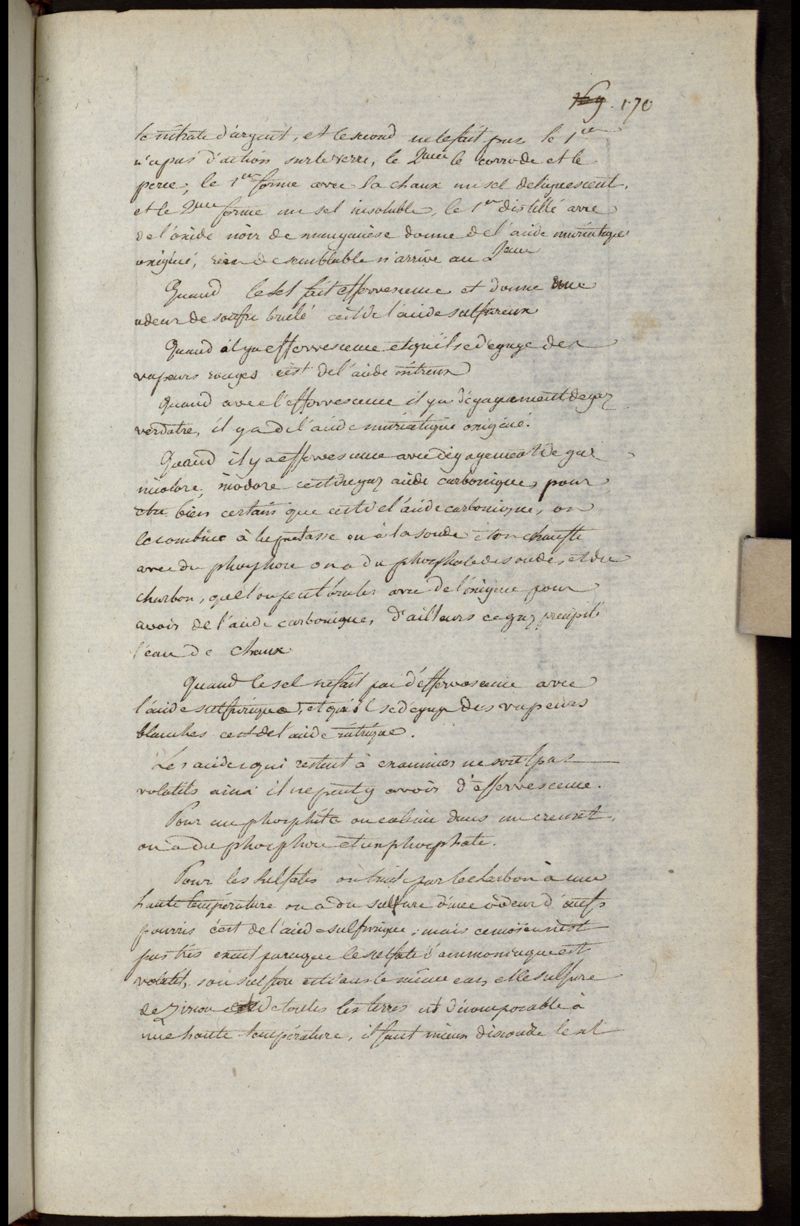 169. 170
le nitrate d'argent, et le second ne le fait pas le 1er
n'a pas d'action sur le verre, le 2eme le corrode et le
perce, le 1er forme avec la chaux un sel deliquescent,
et le 2eme forme un sel insoluble, le 1er distillé avec
de l'oxide noir de manganèse donne de l'acide muriatique
oxigené, rien de semblable n'arrive au 2eme
Quand le sel fait effervescence et donne une
odeur de soufre brulé c'est de l'acide sulfureux
Quand il y a effervescence et qu'il se degage des
vapeurs rouges c'est de l'acide nitreux
Quand avec l'effervescence il y a dégagement de gaz
verdatre, il y a de l'acide muriatique oxigené.
Quand il y a effervescence avec dégagement de gaz
incolore, inodore c'est du gaz acide carbonique, pour
être bien certain que c'est de l'acide carbonique, on
le combine à la potasse ou à la soude et on chauffe
avec du phosphore on a du phosphate de soude, et du
charbon, que l'on peut bruler avec de l'oxigene pour
avoir de l'acide carbonique, d'ailleurs ce gaz precipite
l'eau de chaux
Quand le sel ne fait pas d'effervescence avec
l'acide sulfurique, et qu'il se degage des vapeurs
blanches c'est de l'acide nitrique.
Les acides qui restent à examiner ne sont pas
volatils ainsi il ne peut y avoir d'effervescence.
Pour un phosphite on calcine dans un creuset,
on a du phosphore et un phosphate.
Pour les sulfates on traite par le charbon à une
haute température on a du sulfure d'une odeur d'œufs
pourris c'est de l'acide sulfurique; mais ce moïen n'est
pas très exact parceque le sulfate d'ammoniaque est
volatil, son sulfure est dans le même cas, et le sulfure
de zircon et de toutes les terres est décomposable à
une haute température, il faut mieux dissoudre le sel